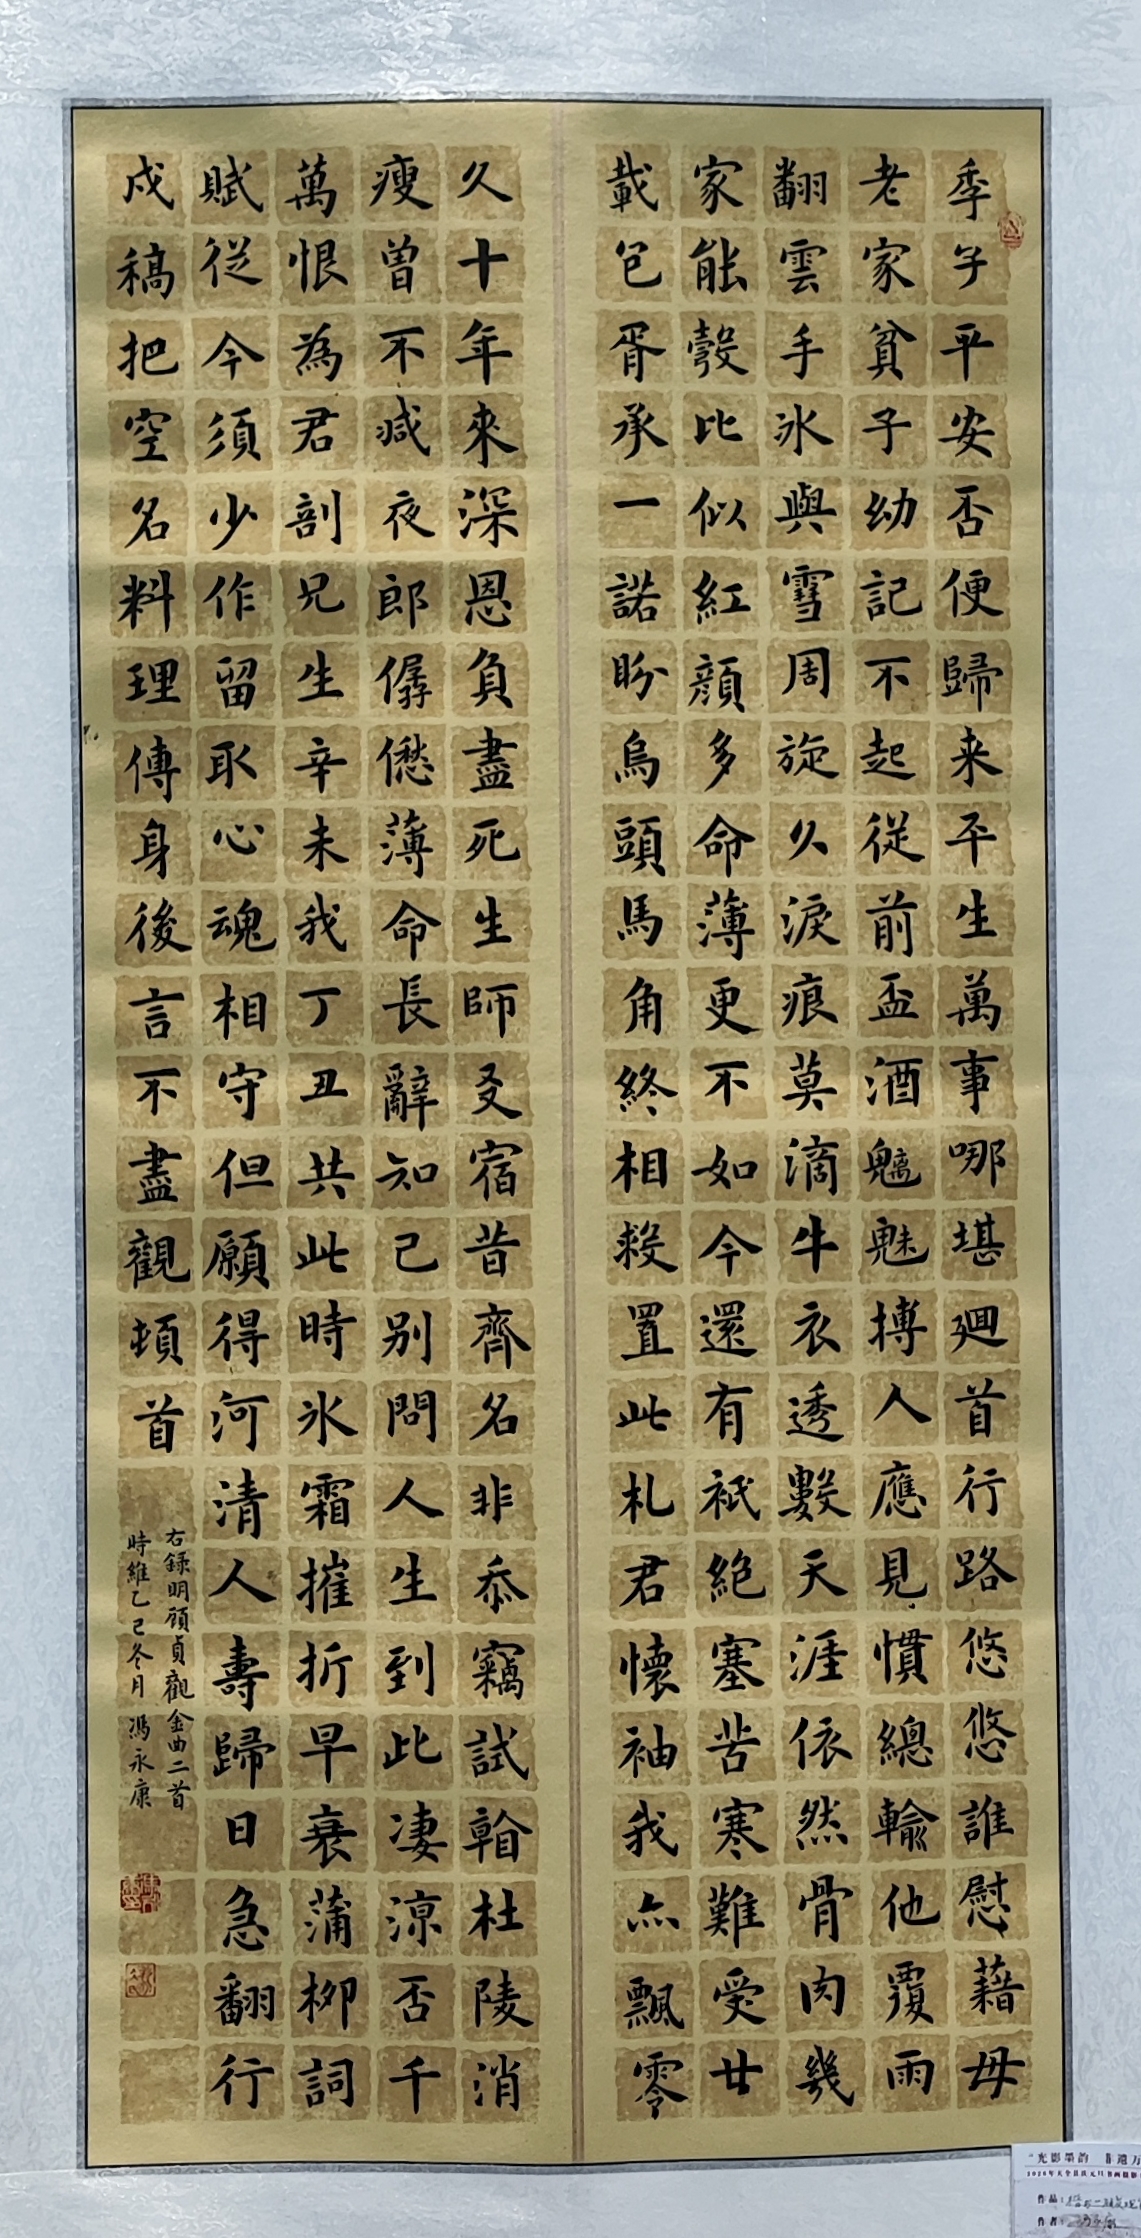 季子平安否便歸来平生萬事哪堪廻首行路悠悠誰慰藉母
老家貧子幼記不起從前盃酒魑魅搏人應見慣總輸他覆雨
翻雲手氷與雪周旋久淚痕莫滴牛衣透數天涯依然骨肉幾
家能彀比似紅顔多命薄更不如今還有祇絕塞苦寒難受廿
載包胥承一諾盼烏頭馬角終相救置此札君懷袖我亦飄零
久十年來深恩負盡死生師友宿昔齊名非忝竊試看杜陵消
瘦曾不減夜郎僝僽薄命長辭知己别問人生到此凄涼否千
萬恨為君剖兄生辛未我丁丑共此時氷霜摧折早衰蒲柳詞
賦從今須少作留取心魂相守但願得河清人壽歸日急翻行
戍稿把空名料理傳身後言不盡觀頓首
右録明顧貞觀金曲二首
時維乙巳冬月馮永康
“光影墨韵 非遗万
2026年天全县庆元旦书画摄影
作品：
作者：